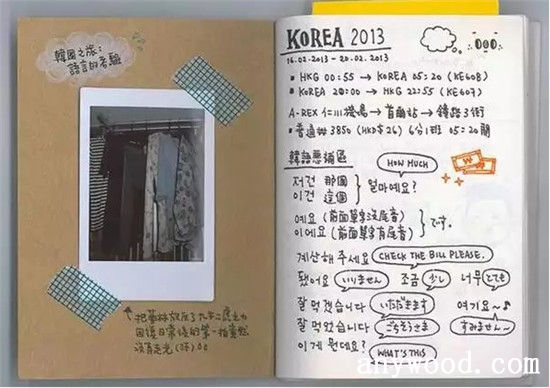 韓國之旅:
語言的考驗
KOREA 2013
16.02.2013 - 20.02.2013
• HKG 00:55 → KOREA 05:20 (KE608)
• KOREA 20:00 → HKG 22:55 (KE607)
A-REX 仁川機場 → 首爾站 → 鐘路3街
• 普通 3850 (HKD$26) 6分1班 05:20開
韓語惡補區
HOW MUCH
저건 那個
이건 這個
얼마예요?
예요 (前面單字沒尾音)
이에요 (前面單字有尾音)
です。
계산해 주세요 CHECK THE BILL PLEASE.
됐어요 いりません 조금 少し 너무 とても
잘 먹겠습니다 いただきます 여기요~
잘 먹었습니다 ごちそうさま すみません~
이게 뭔데요? WHAT'S THIS
回復日常後的第一指竟然
沒有走光
anywood.com